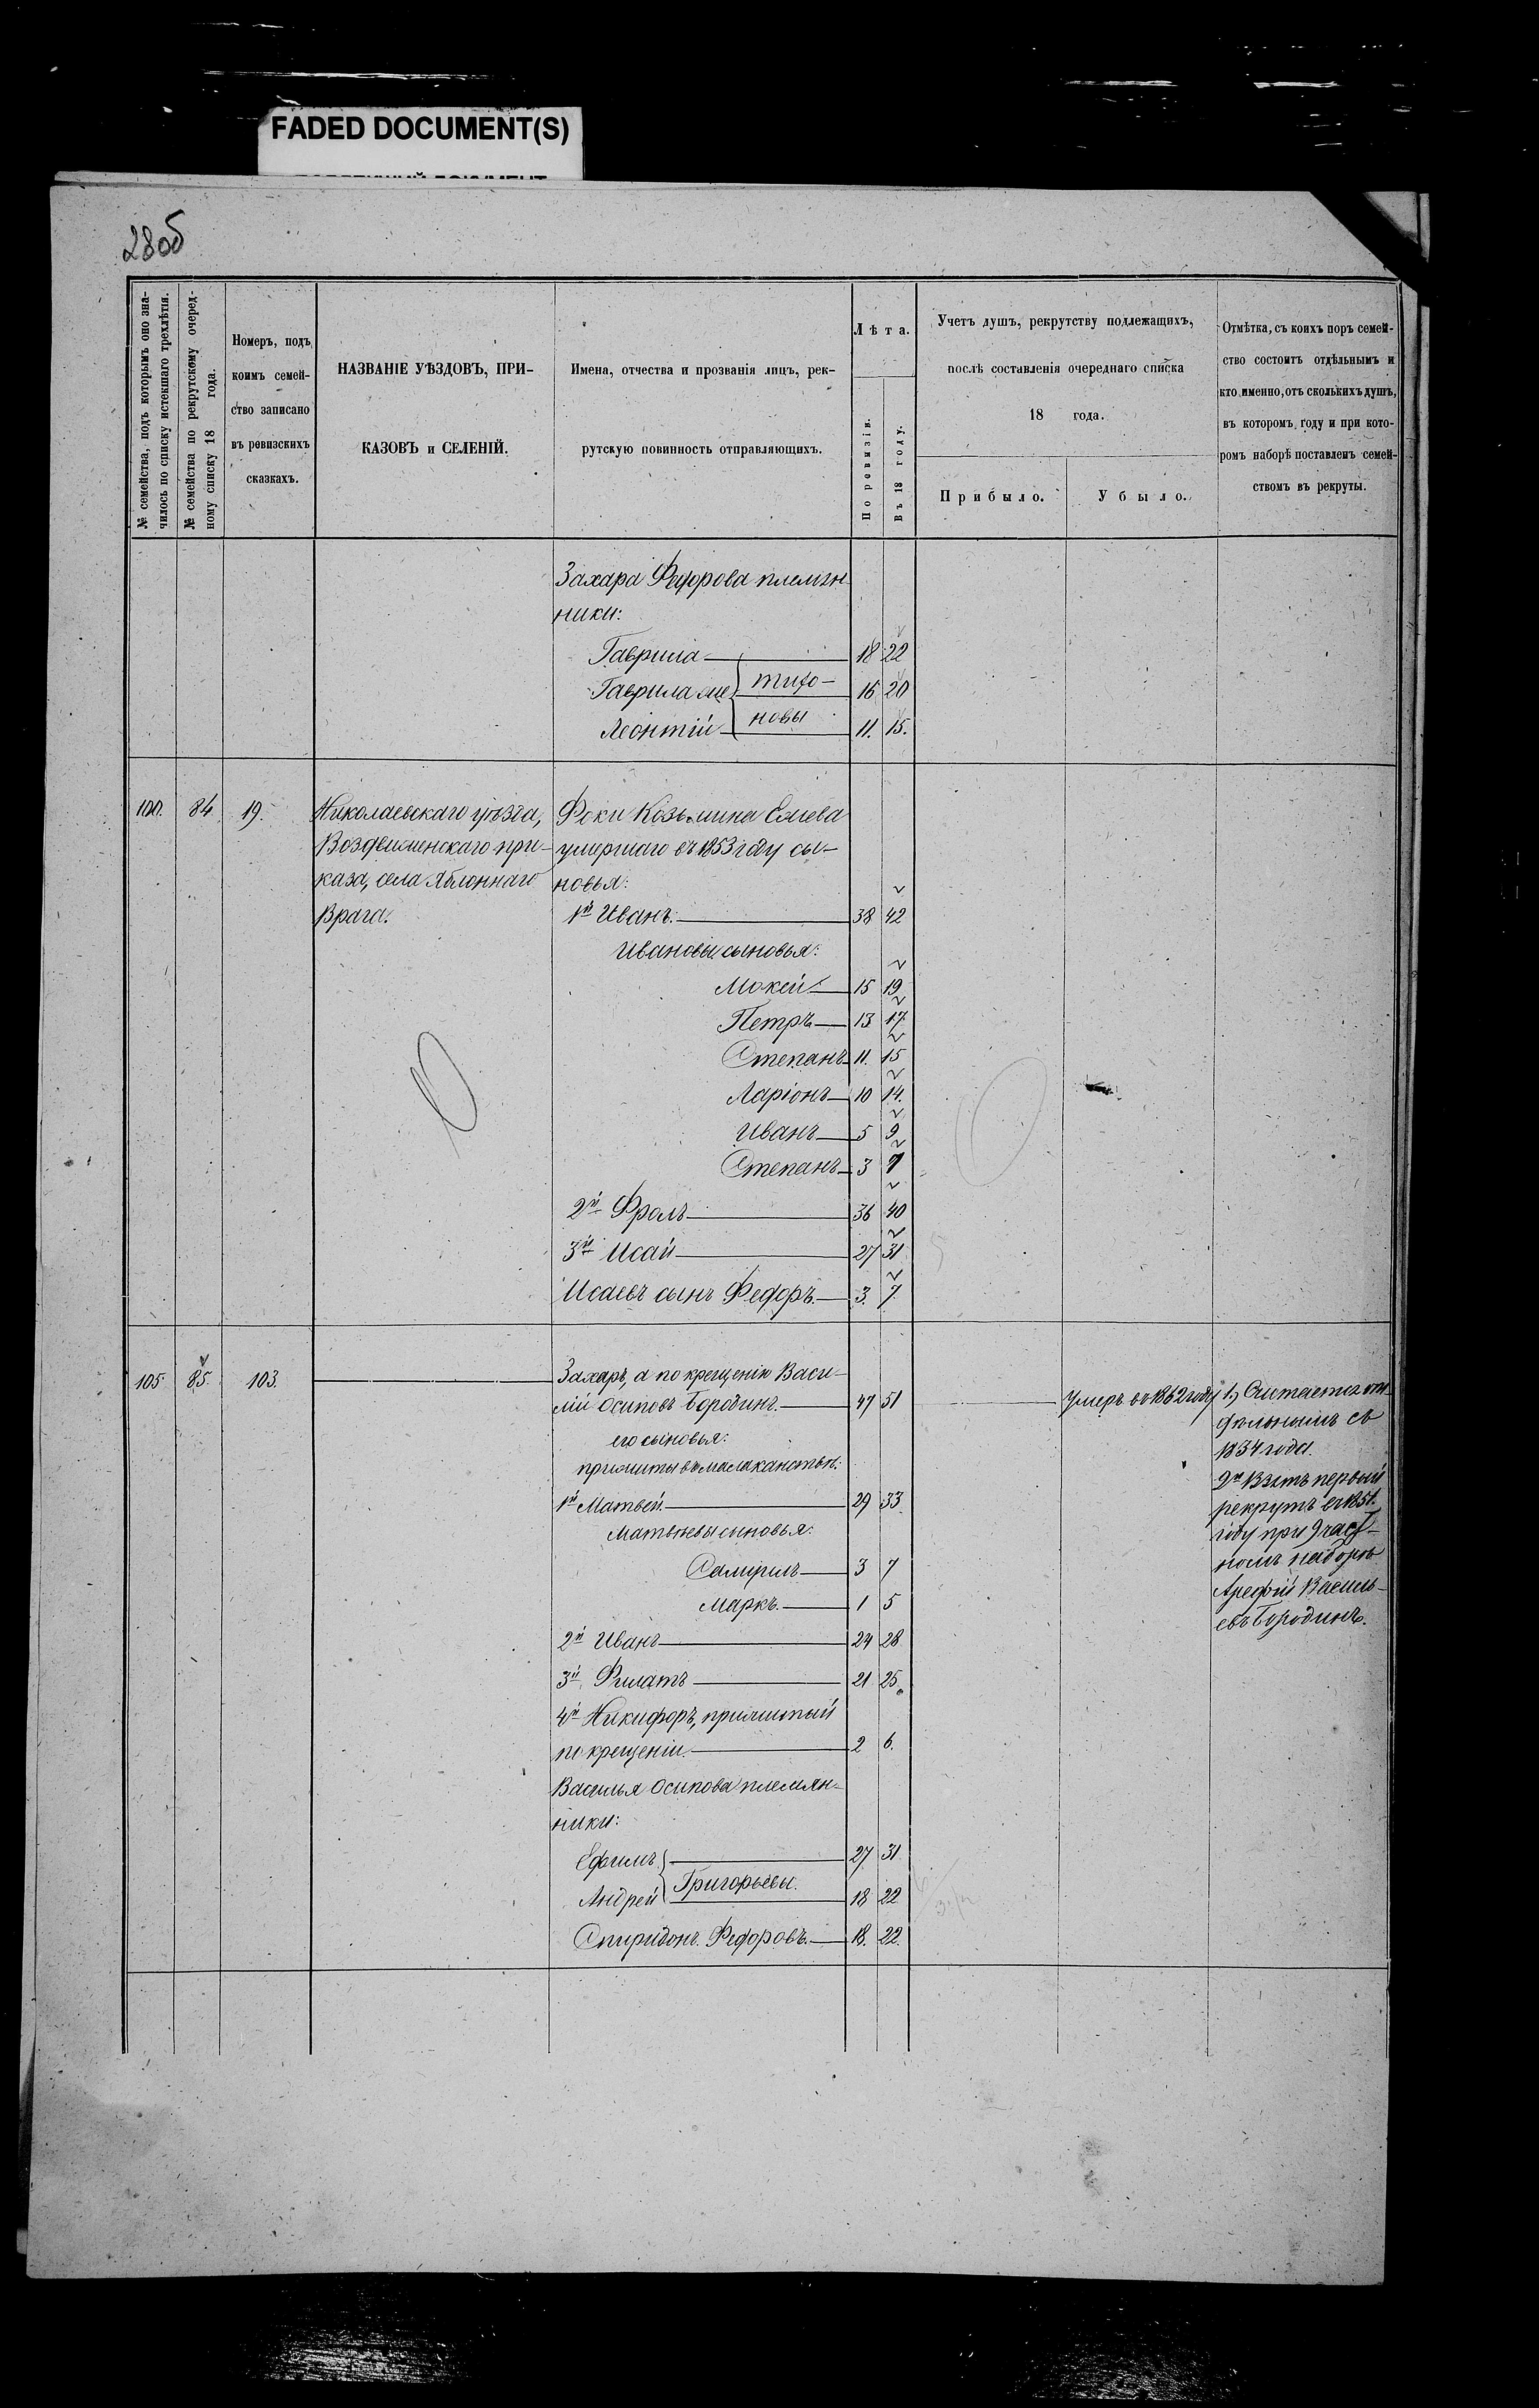 FADED DOCUMENT(S)
28об
№ семейства, подъ которымъ оно зна-
чилось по списку истекшаго трехлѣтія.
№ семейства по рекрутскому очеред-
ному списку 18 года.
Номеръ, подъ
коимъ семей-
ство записано
въ ревизскихъ
сказкахъ.
НАЗВАНІЕ УѢЗДОВЪ, ПРИ-
КАЗОВЪ и СЕЛЕНІЙ.
Имена, отчества и прозванія лицъ, рек-
рутскую повинность отправляющихъ.
Лѣта.
По ревизіи.
Въ 18 году.
Учетъ душъ, рекрутству подлежащихъ,
послѣ составленія очереднаго списка
18 года.
Прибыло.
Убыло.
Отмѣтка, съ коихъ поръ семей-
ство состоитъ отдѣльнымъ и
кто именно, отъ сколькихъ душъ,
въ которомъ году и при кото-
ромъ наборѣ поставленъ семей-
ствомъ въ рекруты.
Захара Федорова племян
ники:
Гаврила 18 22
Гаврила же Тихо- 16 20
Леонтій новы 11. 15.
100. 84 19.
Николаевскаго уѣзда,
Воздвиженскаго при-
каза, села Яблоннаго
Врага.
Фоки Козьмина
умершаго въ 1853 году сы-
новья:
1й Иванъ. 38 42
Ивановы сыновья:
Мокей 15 19
Петръ 13 17.
Степанъ 11. 15
Ларіонъ 10 14.
Иванъ 5 9
Степанъ 3 7
2й Фролъ 36 40
3й Исай 27 31
Исаевъ сынъ Федоръ. 3. 7.
105. 85. 103.
Захаръ, а по крещенію Васи-
лій Осиповъ Бородинъ. 47 51 Умеръ въ 1862 году
его сыновья:
прижиты въ малаканствѣ:
1й Матвей. 29 33
Матвѣевы сыновья:
Самуилъ 3 7
Маркъ. 1 5
2й Иванъ 24 28
3й Филатъ 21 25
4й Никифоръ, прижитый
по крещеніи. 2 6.
Василья Осипова племян-
ники:
Ефимъ 27 31
Григорьевы.
Андрей 18 22
Спиридонъ Федоровъ. 18. 22.
1, Считается от-
дѣльнымъ съ
1834 года.
2й Взятъ первый
рекрутъ въ 1851.
году при 9 част-
номъ наборѣ
Арефій Василь-
евъ Бородинъ.